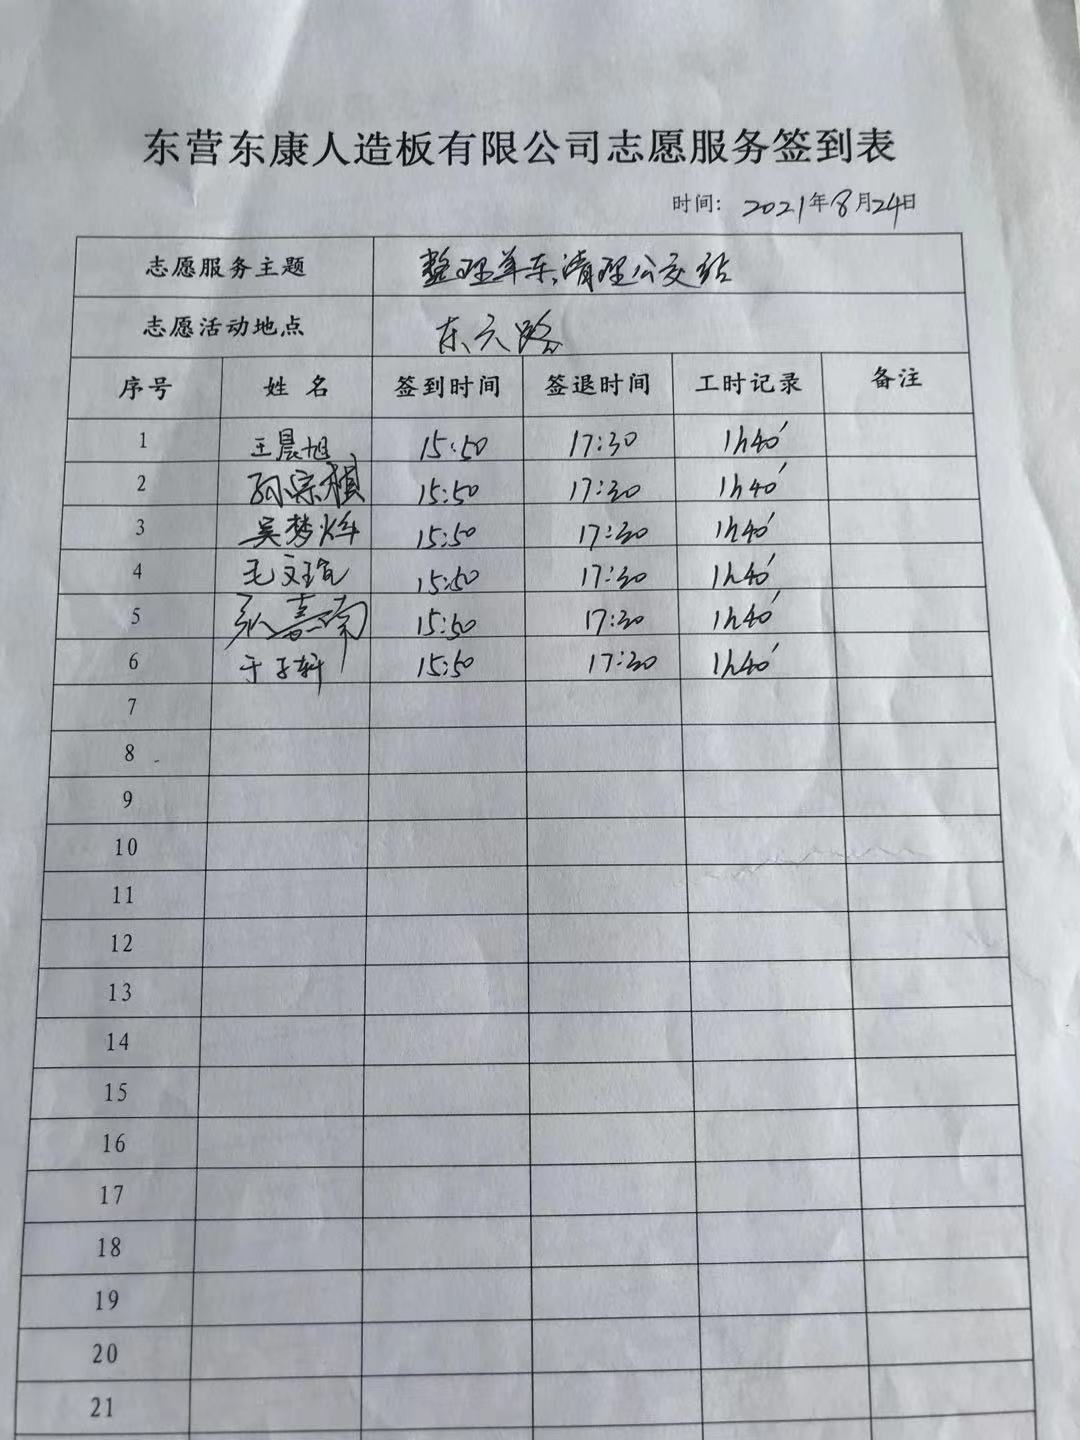 东营东康人造板有限公司志愿服务签到表
时间: 2021年8月24日
志愿服务主题 整理单车,清理公交站
志愿活动地点 东六路
序号 姓名 签到时间 签退时间 工时记录 备注
1 王晨旭 15:50 17:30 1h40′
2 孙宗祺 15:50 17:30 1h40′
3 吴梦烨 15:50 17:30 1h40′
4 毛文瑄 15:50 17:30 1h40′
5 张嘉南 15:50 17:30 1h40′
6 于子轩 15:50 17:30 1h40′
7
8
9
10
11
12
13
14
15
16
17
18
19
20
21